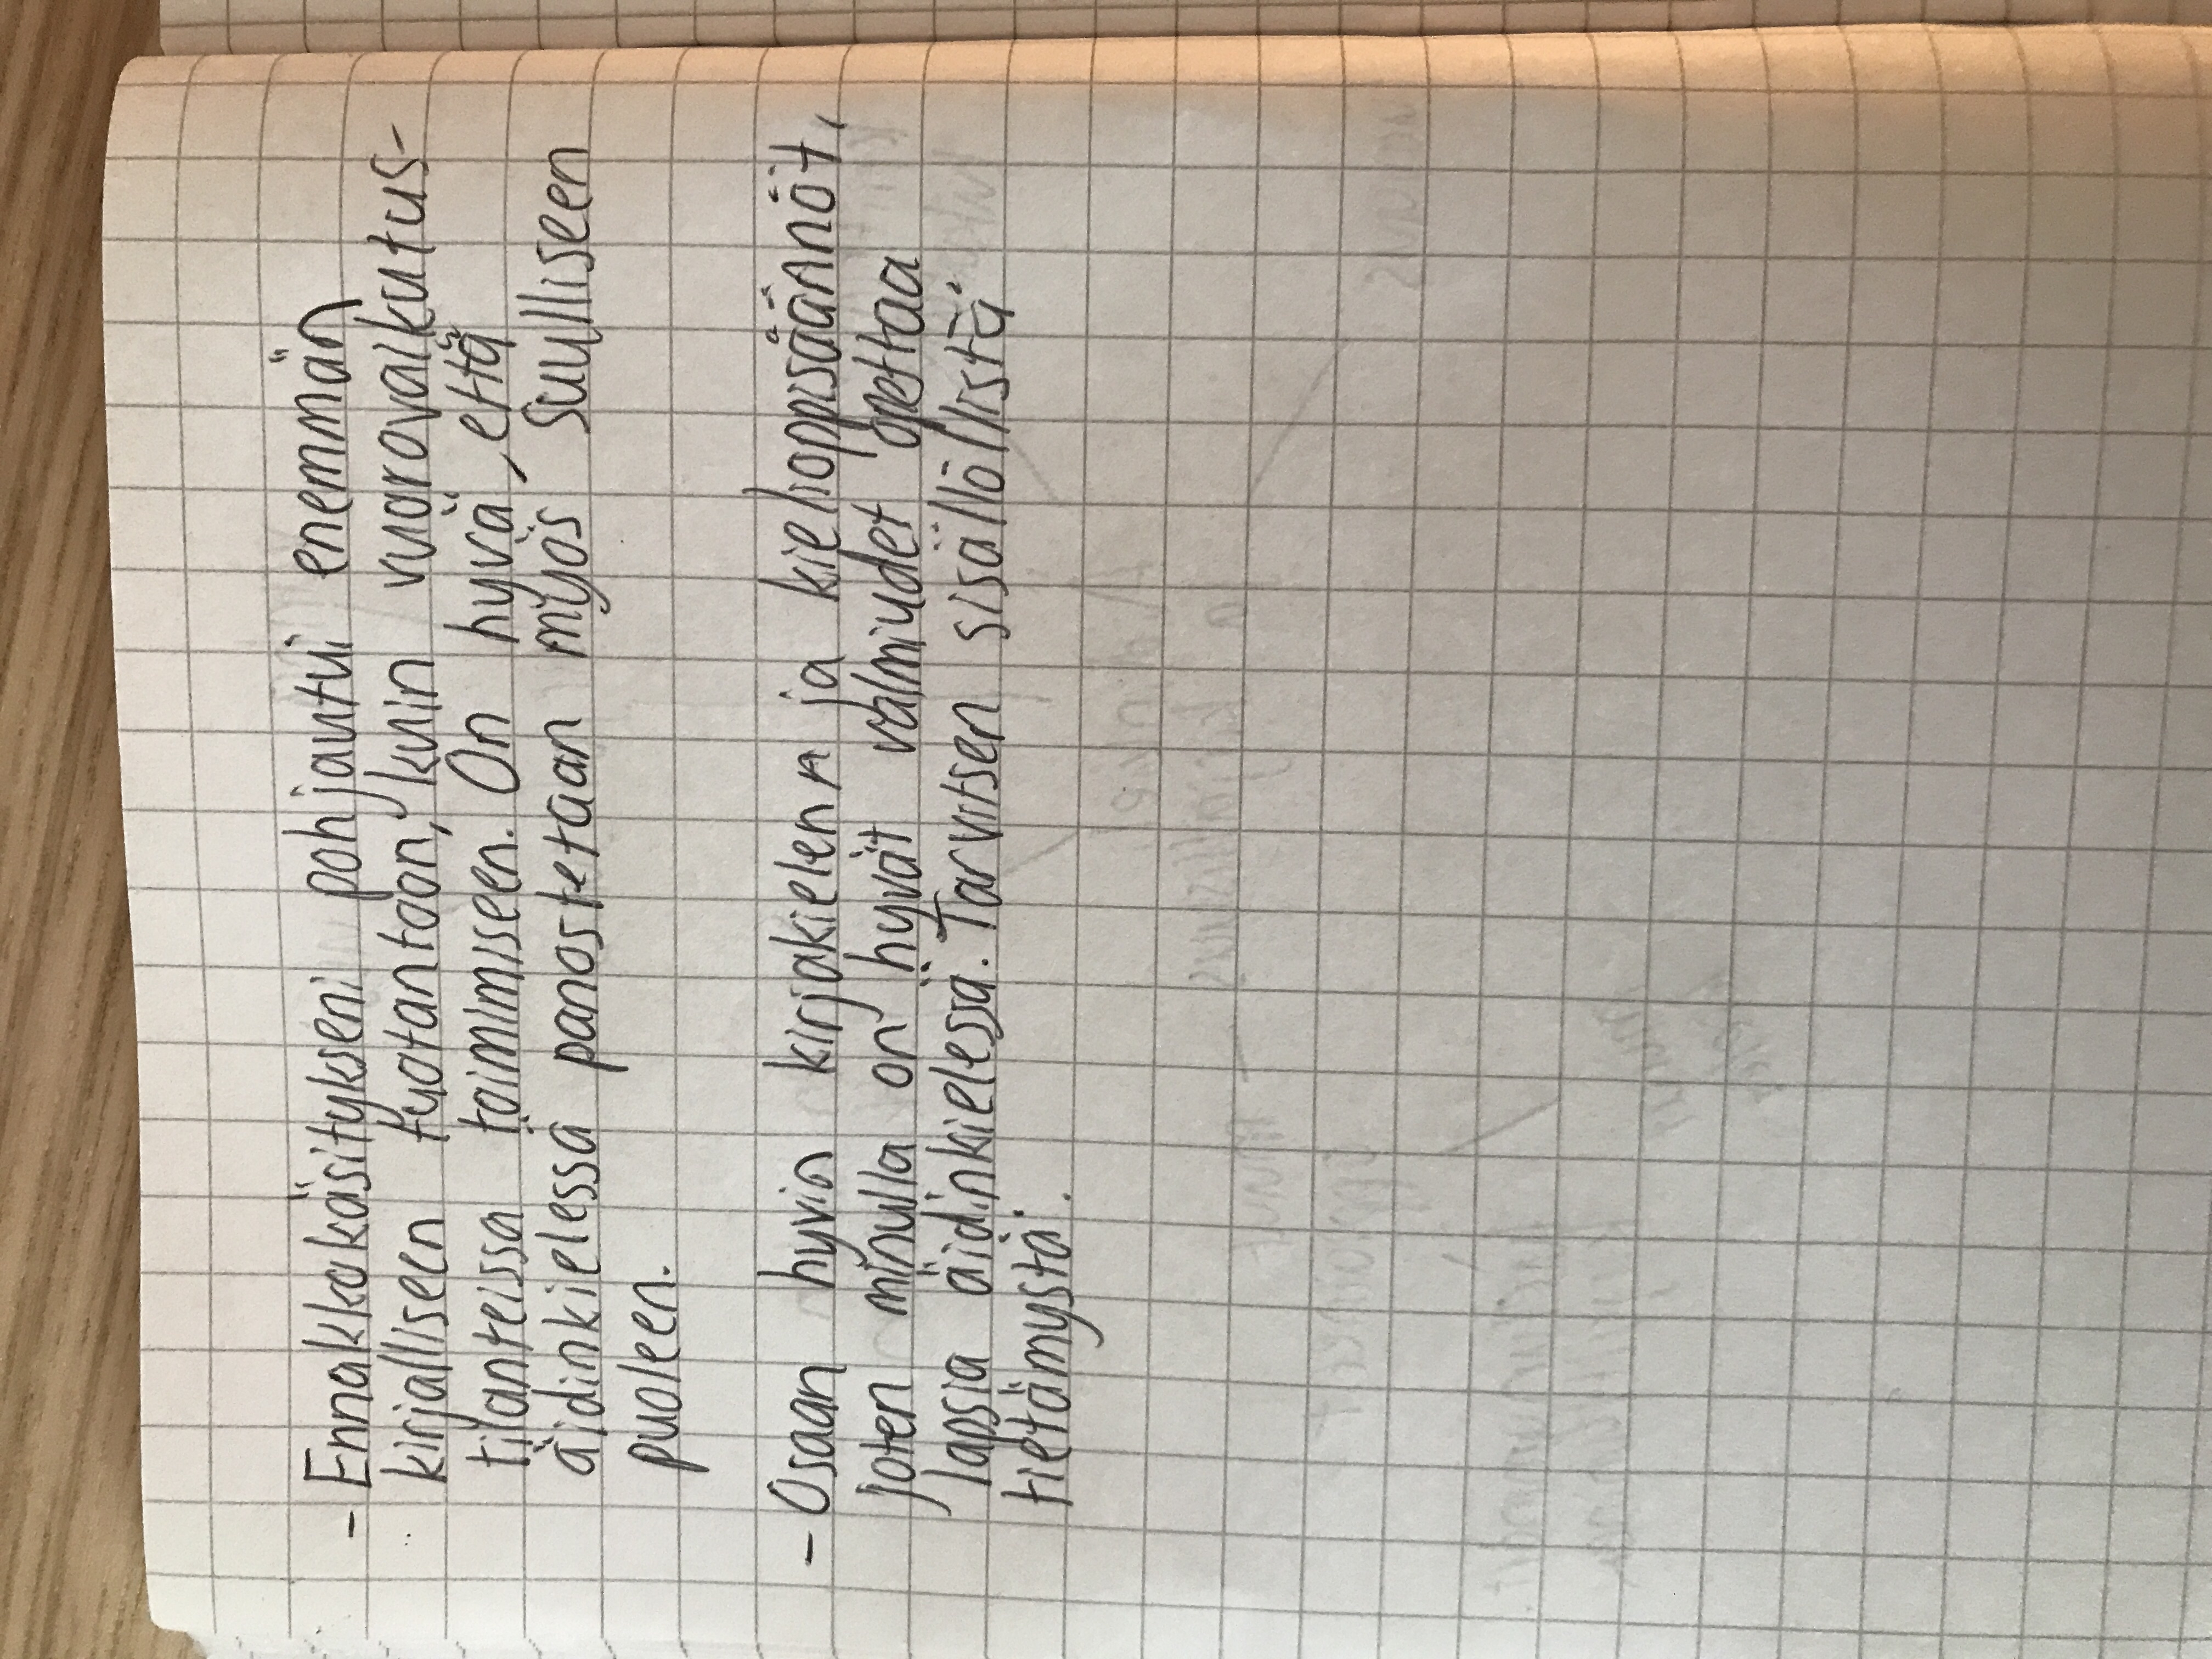 - Ennakkokäsitykseni pohjautui enemmän
kirjalliseen tuotantoon, kuin vuorovaikutus-
tilanteissa toimimiseen. On hyvä, että
äidinkielessä panostetaan myös suulliseen
puoleen.
- Osaan hyvin kirjakielen ja kielioppisäännöt,
joten minulla on hyvät valmiudet opettaa
lapsia äidinkielessä. Tarvitsen sisällöllistä
tietämystä.